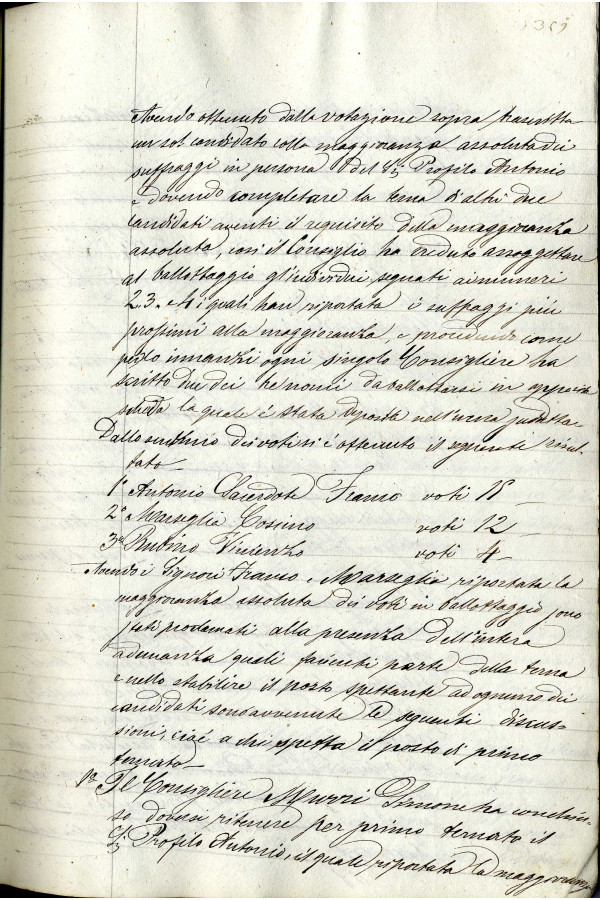 Avendo ottenuto dalla votazione sopra trascritta
un sol candidato colla maggioranza assoluta dei
suffragi in persona del Sig. Profilo Antonio
e dovendo completare la terna d'altri due
candidati aventi il requisito della maggioranza
assoluta, così il Consiglio ha creduto assoggettare
al ballottaggio gl'individui segnati ai numeri
2. 3. 4 i quali han riportata i suffragi più
prossimi alla maggioranza, e procedendo come
per lo innanzi ogni singolo Consigliere ha
scritto due dei tre nomi da ballottarsi in apposita
scheda la quale è stata deposta nell'urna
Dallo scrutinio dei voti si è ottenuto il seguente risul-
tato
1° Antonio Sacerdote Franco voti 15
2° Marseglia Cosimo voti 12
3° Rubino Vincenzo voti 4
Avendo i Signori Franco e Marseglia riportata la
maggioranza assoluta dei voti in ballottaggio sono
stati proclamati alla presenza dell'intera
adunanza quali facienti parte della terna
e nello stabilire il posto spettante ad ognuno dei
candidati sono avvenute le seguenti discus-
sioni, cioè a chi spetta il posto di primo
ternato
1° Il Consigliere Murri Simone ha conchiu-
so doversi ritenere per primo ternato il
Sig. Profilo Antonio, il quale riportata la maggioranza